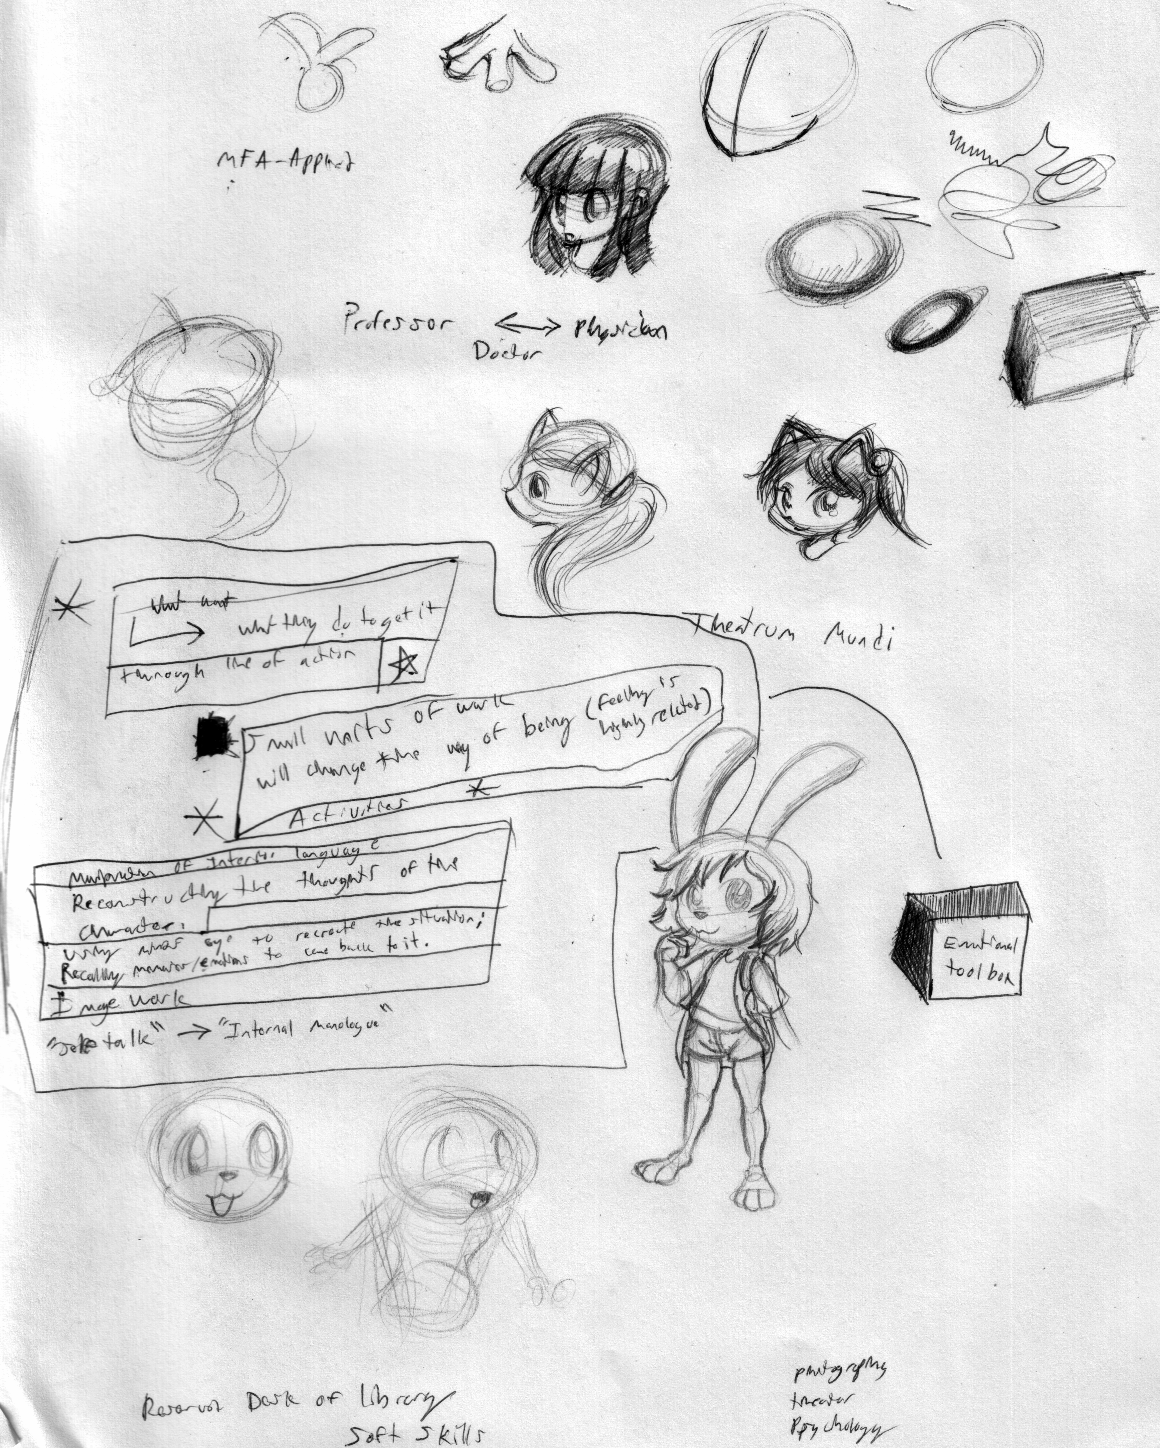 MFA-Applied
Professor ⟷ physician
Doctor
what want
what they do to get it
through line of action
Theatrum Mundi
Small units of work
will change the way of being (feeling is
highly related)
Activities
Manipulation of Internal language
Reconstructing the thoughts of the
character.
using minds eye to recreate the situation;
Recalling memories/emotions to come back to it.
Image work
"Self talk" → "Internal monologue"
Emotional
toolbox
Desk of library
Soft Skills
photography
theater
Psychology